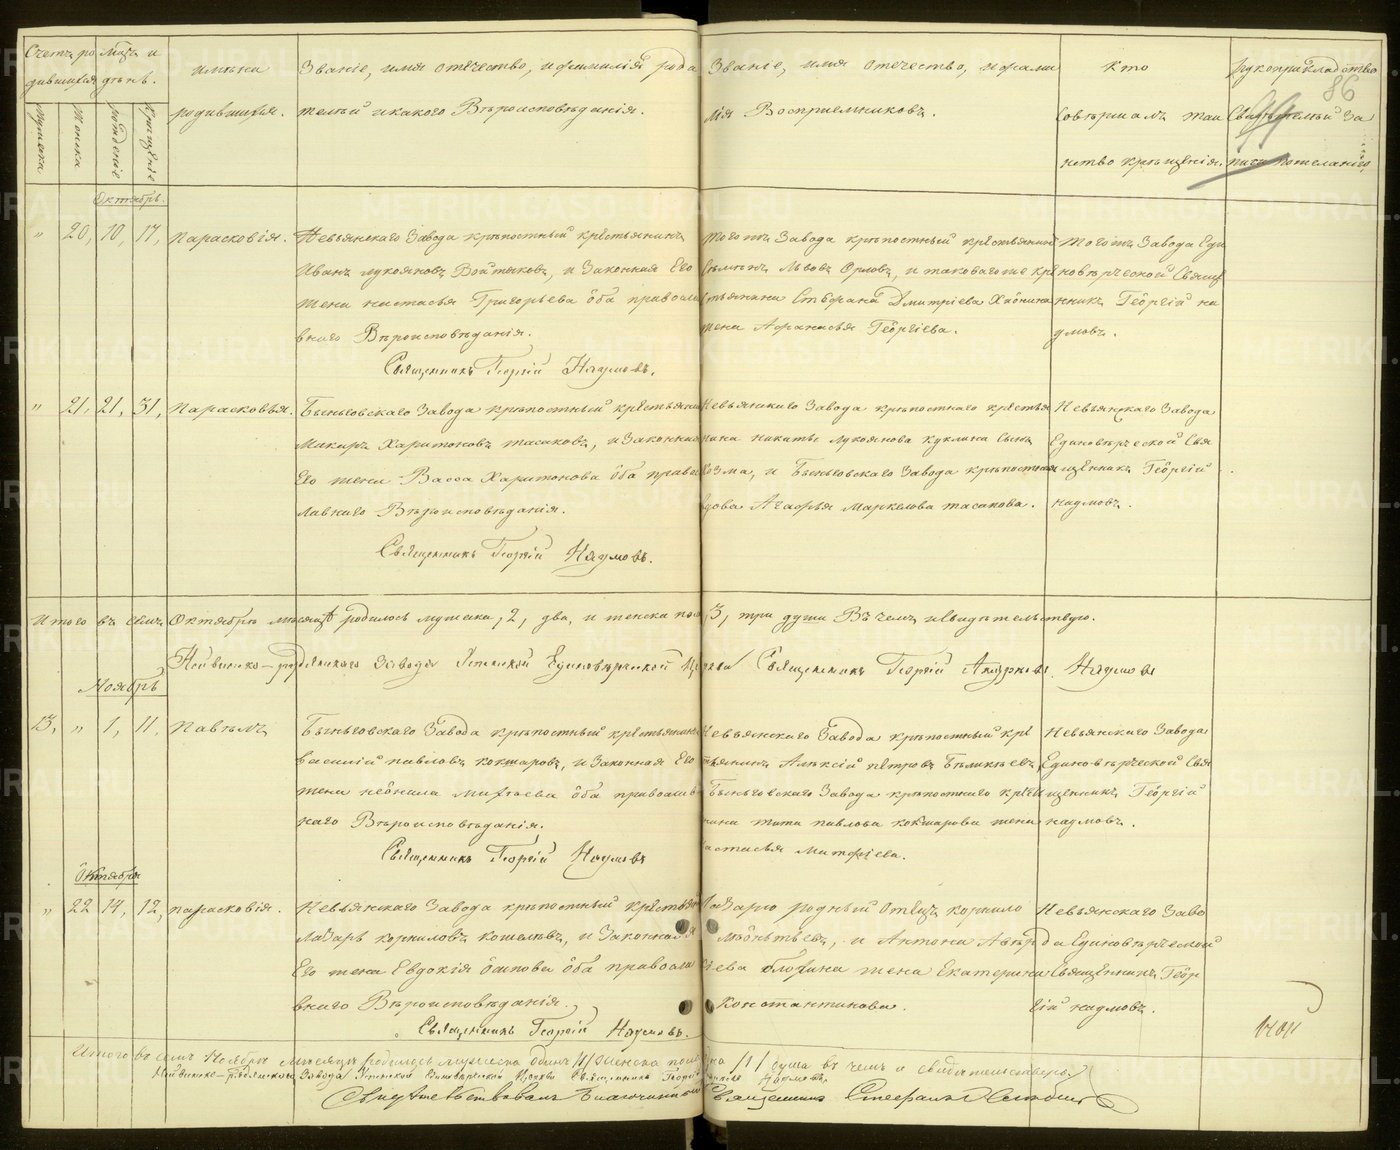 Счетъ ро дившихся
Мѣсяцъ и день.
Мужска
Женска
рожденіе
Крещеніе
имяна родившихся.
Званіе, имя отечество, и фамилія роди
телей и какого Вѣроисповѣданія.
Званіе, имя отечество, и фами
лія Восприемниковъ.
Кто
Совершалъ таи
нство крещенія.
Рукоприкладство
Свидѣтелей за
писи пожеланію.
86
Октябрь.
" 20, 10, 17, Парасковія.
Невьянскаго Завода крѣпостный крѣстьянинъ
Иванъ лукояновъ Войтяковъ, и Законная Его
жена настасья Григорьева оба правосла
внаго Вѣроисповѣданія.
Священникъ Георгій Наумовъ.
тогожъ Завода крѣпостный крѣстьянинъ
Семенъ Львовъ Орловъ, и таковагоже кре
стьянина Стефана Дмитріева Хионина
жена Афанасья Георгіева.
Тогожъ Завода Еди
новѣрческой Свяще
нникъ Георгій на
умовъ.
" 21, 21, 31, Парасковья.
Быньговскаго Завода крѣпостный крѣстьянин
Макаръ Харитоновъ тасаковъ, и Законная
Его жена Васса Харитонова оба право
лавнаго Вѣроисповѣданія.
Священникъ Георгій Наумовъ.
Невьянскаго Завода крѣпостнаго крѣстья
нина никиты лукоянова куклина Сынъ
Козма, и Быньговскаго Завода крѣпостная
вдова Агафья Маркелова тасакова.
Невьянскаго Завода
Единовѣрческой Свя
щенникъ Георгій
наумовъ.
Итого въ семъ Октябрѣ мѣсяцѣ родилось мужска, 2, два, и женска пола 3, три души Въ чемъ исвидѣтельствую.
Нейвинско-рудянскаго Завода Успенской Единовѣрческой Церкви Священникъ Георгій Андреевъ Наумовъ
Ноябрь
13, " 1, 11, Павелъ
Быньговскаго Завода крѣпостный крѣстьянинъ
Василій павловъ кокшаровъ, и Законная Его
жена неонила Михѣева оба православ
наго Вѣроисповѣданія.
Священникъ Георгій Наумовъ
Невьянскаго Завода крѣпостный кре
стьянинъ Алексій петровъ Бѣликѣевъ,
Быньговскаго Завода крѣпостнаго крѣсть
нина тита павлова кокшарова жена
настасья Матфіева.
Невьянскаго Завода
Единовѣрческой Свя
щенникъ Георгій
наумовъ.
Октября
" 22 14, 12, парасковія.
Невьянскаго Завода крѣпостный крѣстьян
Лазарь корниловъ кошелевъ, и Законная
Его жена Евдокія Осипова оба правосла
внаго Вѣроисповѣданія.
Священникъ Георгій Наумовъ.
Лазарю родный Отецъ корнило
леонтьевъ, и Антона Авѣр
кіева жена Екатерина
Константинова.
Невьянскаго Заво
да Единовѣрческой
Священникъ Геор
гій наумовъ.
Итого въ семъ Ноябрѣ мѣсяцѣ родилось мужеска одинъ /1/ женска пола одна /1/ душа въ чемъ и свидѣтельствую
Нейвинско-Рудянскаго Завода Успенской Единовѣрческой Церкви Священникъ Георгій Андреевъ Наумовъ
Свидѣтельствовалъ Благочинный Священникъ Стефанъ
METRIKI.GASO-URAL.RU